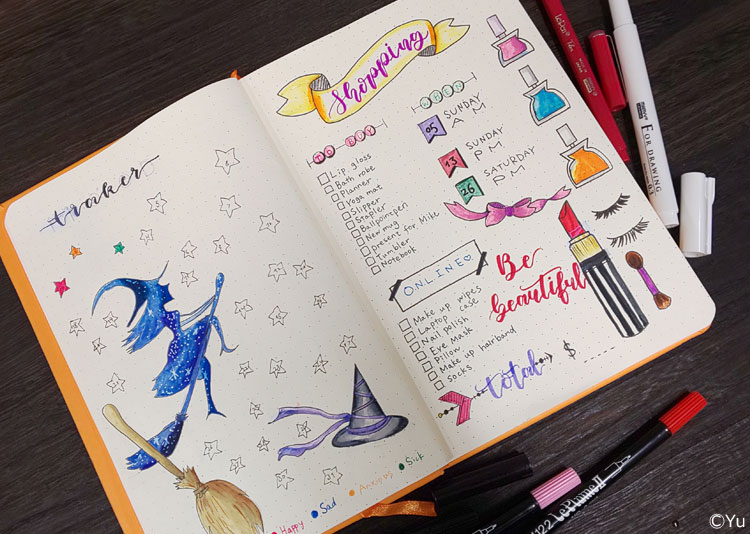 traker
Happy
Sad
Anxious
Sick
Shopping
TO BUY
Lip gloss
Bath robe
Planner
Yoga mat
Slipper
Stapler
Ballpointpen
New mug
present for Mike
Tumbler
Notebook
WHEN
05 SUNDAY
AM
13 SUNDAY
PM
26 SATURDAY
PM
ONLINE
Make up wipes
Laptop case
Nail polish
Eye Mask
Pillow
Make up hairband
Socks
Be
beautiful
total $
FOR DRAWING
LePlume II
©Yu